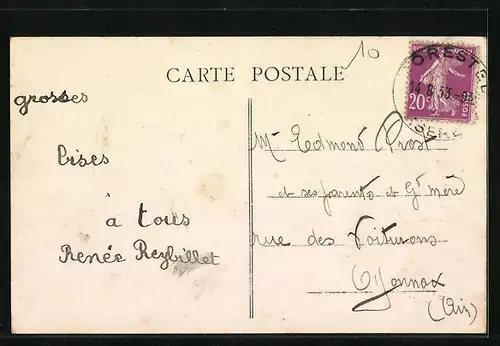 10
CARTE POSTALE
ORESTEL
14-8 33
ISERE
20c
POSTES
grosses
bises
à tous
Renée Reybillet
Mr Edmond Prost
et ses parents et Gd mère
rue des Voituriers
Oyonnax
(Ain)